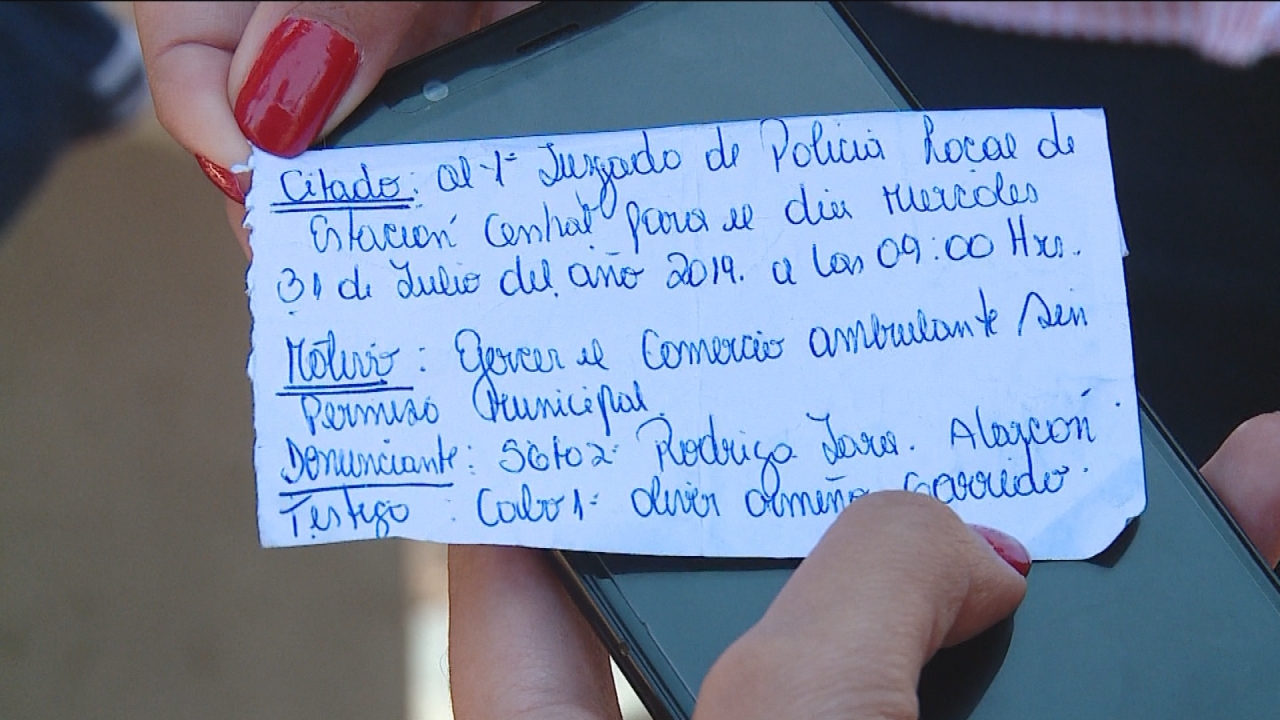 Citado: al 1º Juzgado de Policia Local de
Estación Central para el dia Miercoles
31 de Julio del año 2019. a las 09:00 Hrs.
Motivo: Ejercer el Comercio ambulante sin
Permiso Municipal.
Denunciante: SGTO2º Rodrigo Jara. Alarcón
Testigo: Cabo 1º Oliver Ormeño Garrido.